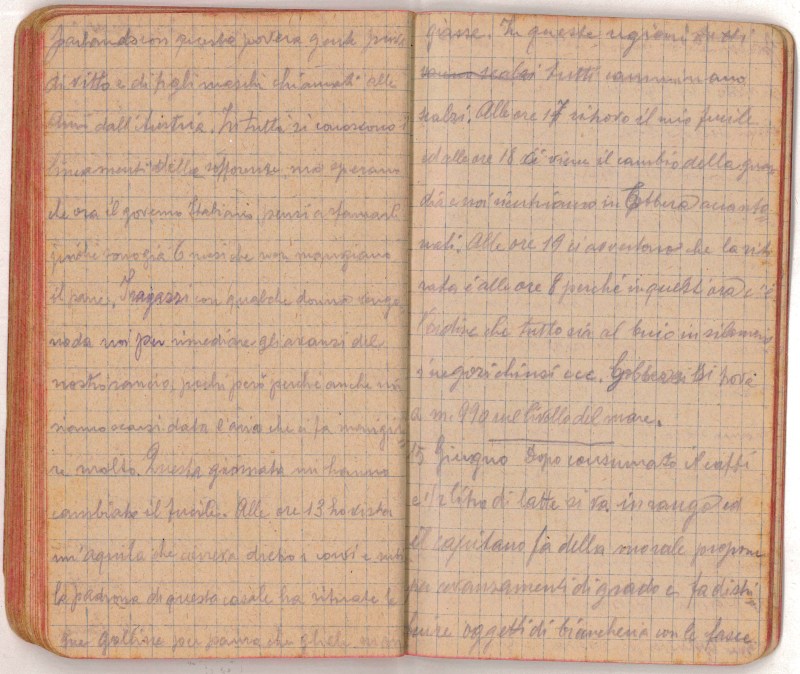 parlando con questa povera gente priva
di vitto e di figli maschi chiamati alle
armi dall'Austria. In tutti si conoscono i
lineamenti della sofferenza, ma sperano
che ora il governo Italiano, pensi a sfamarli
poiché sono già 6 mesi che non mangiano
il pane. Ragazzi con qualche donna vengo
no da noi per rimediare gli avanzi del
nostro rancio, pochi però perché anche noi
siamo scarsi data l'aria che ci fa mangia
re molto. Questa giornata mi hanno
cambiato il fucile. Alle ore 13 ho visto
un'aquila che correva dietro i corvi e
la padrona di questa casale ha ritirate le
sue galline per paura che gliele man
giasse. In queste regioni
scalzi tutti camminano
scalzi. Alle ore 17 ritrovo il mio fucile
ed alle ore 18 ci viene il cambio della guar
dia e noi rientriamo in accanto
nati. Alle ore 19 ci avvertono che la riti
rata è alle ore 8 perché in quest'ora c'è
l'ordine che tutto sia al buio in silenzio
i negozi chiusi ecc. si trova
a m. 990 sul livello del mare.
15 Giugno Dopo consumato il caffè
e 1/2 litro di latte si va in rango ed
il capitano fa della morale propone
per avanzamenti di grado e fa distri
buire oggetti di biancheria con le fasce